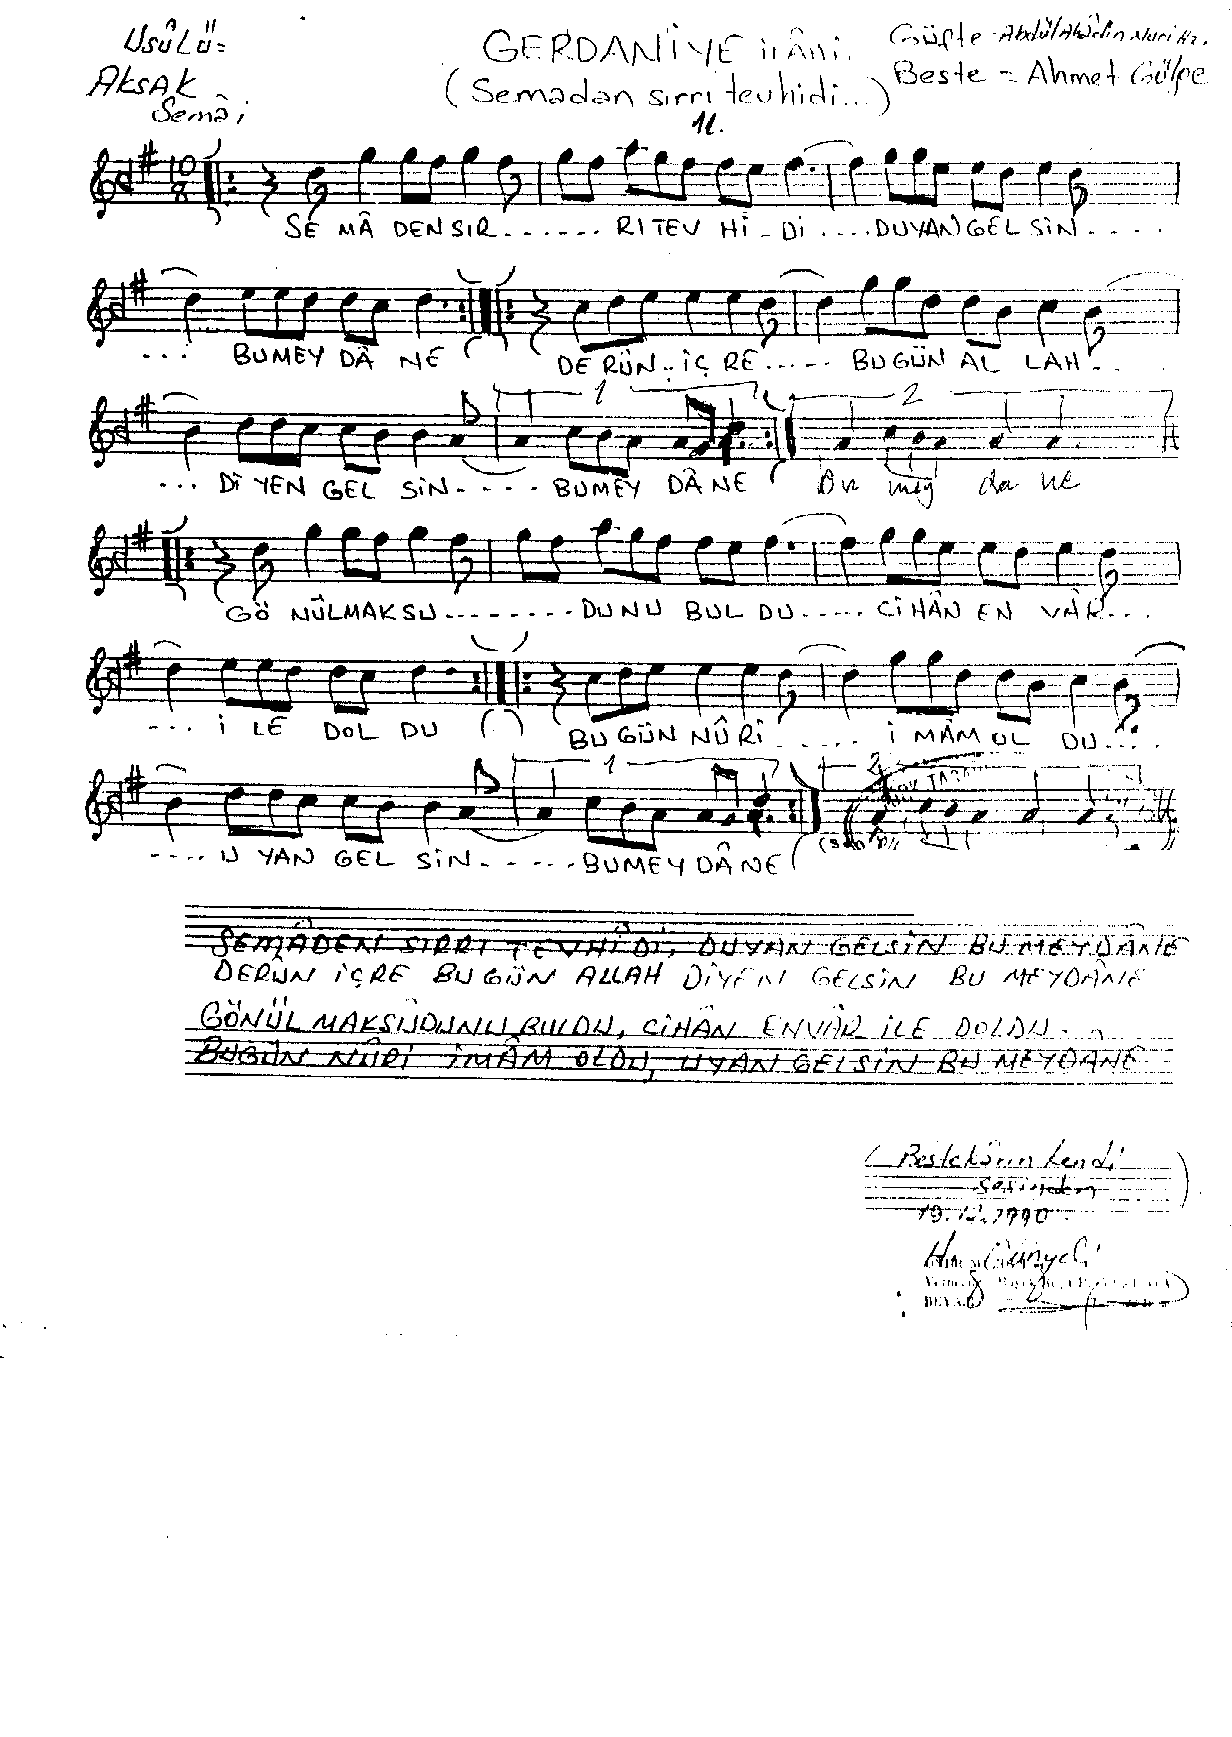 USÛLÜ=
AKSAK
Semâi
GERDANİYE ilâhi.
(Semadan sırrı tevhidi...)
Güfte - Abdülahâdin Nuri Hz.
Beste = Ahmet Gülpe
11.
10
8
SE MÂ DEN SIR....... RI TEV Hİ - Dİ.... DUYAN GEL SİN.....
... BU MEY DÂ NE ( ( DE RÛN.. İÇ RE..... BU GÜN AL LAH..
1 2
... Dİ YEN GEL SİN.... BU MEY DÂ NE ( Bu mey da ne
GÖ NÜL MAK SU........ DU NU BUL DU..... Cİ HÂN EN VÂR...
... İ LE DOL DU ( ) BU GÜN NÛ Rİ...... İ MÂM OL DU....
1 2
.... U YAN GEL SİN..... BU MEY DÂ NE (
SEMÂDEN SIRRI TEVHÎDİ, DUYAN GELSİN BU MEYDÂNE
DERÛN İÇRE BU GÜN ALLAH DİYEN GELSİN BU MEYDÂNE
GÖNÜL MAKSÛDUNU BULDU, CİHÂN ENVÂR İLE DOLDU.
BUGÜN NÛRİ İMÂM OLDU, UYAN GELSİN BU MEYDÂNE
( Bestekârın kendi
sesinden )
19.12.1990